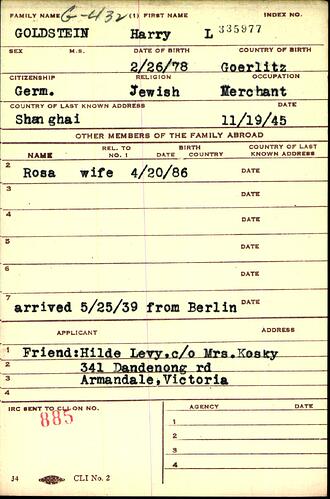 FAMILY NAME G-432 (1) FIRST NAME INDEX NO.
GOLDSTEIN Harry L 335977
SEX M.S. DATE OF BIRTH COUNTRY OF BIRTH
2/26/78 Goerlitz
CITIZENSHIP RELIGION OCCUPATION
Germ. Jewish Merchant
COUNTRY OF LAST KNOWN ADDRESS DATE
Shanghai 11/19/45
OTHER MEMBERS OF THE FAMILY ABROAD
NAME REL. TO NO. 1 BIRTH DATE COUNTRY COUNTRY OF LAST KNOWN ADDRESS
2 Rosa wife 4/20/86 DATE
3 DATE
4 DATE
5 DATE
6 DATE
7 arrived 5/25/39 from Berlin DATE
APPLICANT ADDRESS
1 Friend:Hilde Levy,c/o Mrs.Kosky
2 341 Dandenong rd
3 Armandale,Victoria
4
IRC SENT TO CLI ON NO. AGENCY DATE
885
1
2
3
4
J4 CLI No. 2